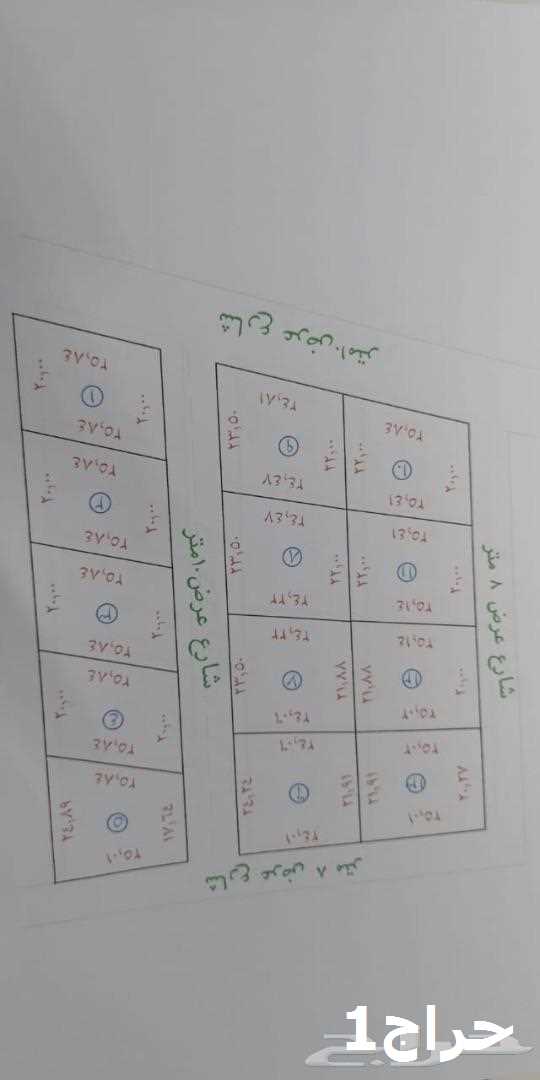 شارع عرض ١٠ متر
٢٥,٨٤
٢٠,٠٠
١
٢٠,٠٠
٢٥,٨٤
٢٥,٨٤
٢٠,٠٠
٢
٢٠,٠٠
٢٥,٨٤
٢٥,٨٤
٢٠,٠٠
٣
٢٠,٠٠
٢٥,٨٤
٢٥,٨٤
٢٠,٠٠
٤
٢٠,٠٠
٢٥,٨٤
٢٥,٨٤
٢٤,٨٩
٥
١٧,٦٤
٢٥,٠١
شارع عرض ١٠ متر
٢٤,٨١
٢٣,٥٠
٩
٢٢,٠٠
٢٤,٤٧
٢٤,٤٧
٢٣,٥٠
٨
٢٢,٠٠
٢٤,٢٢
٢٤,٢٢
٢٣,٥٠
٧
٢١,٨٨
٢٤,٠٦
٢٤,٠٦
٢٤,٢٤
٦
٢١,٩١
٢٤,٠١
٢٥,٨٤
٢٢,٠٠
١٠
٢٠,٠٠
٢٥,٤١
٢٥,٤١
٢٢,٠٠
١١
٢٠,٠٠
٢٥,١٤
٢٥,١٤
٢١,٨٨
١٢
٢٠,٠٠
٢٥,٠٢
٢٥,٠٢
٢١,٩١
١٣
٢٠,٢٧
٢٥,٠١
شارع عرض ٨ متر
شارع عرض ٨ متر
حراج1
حراج